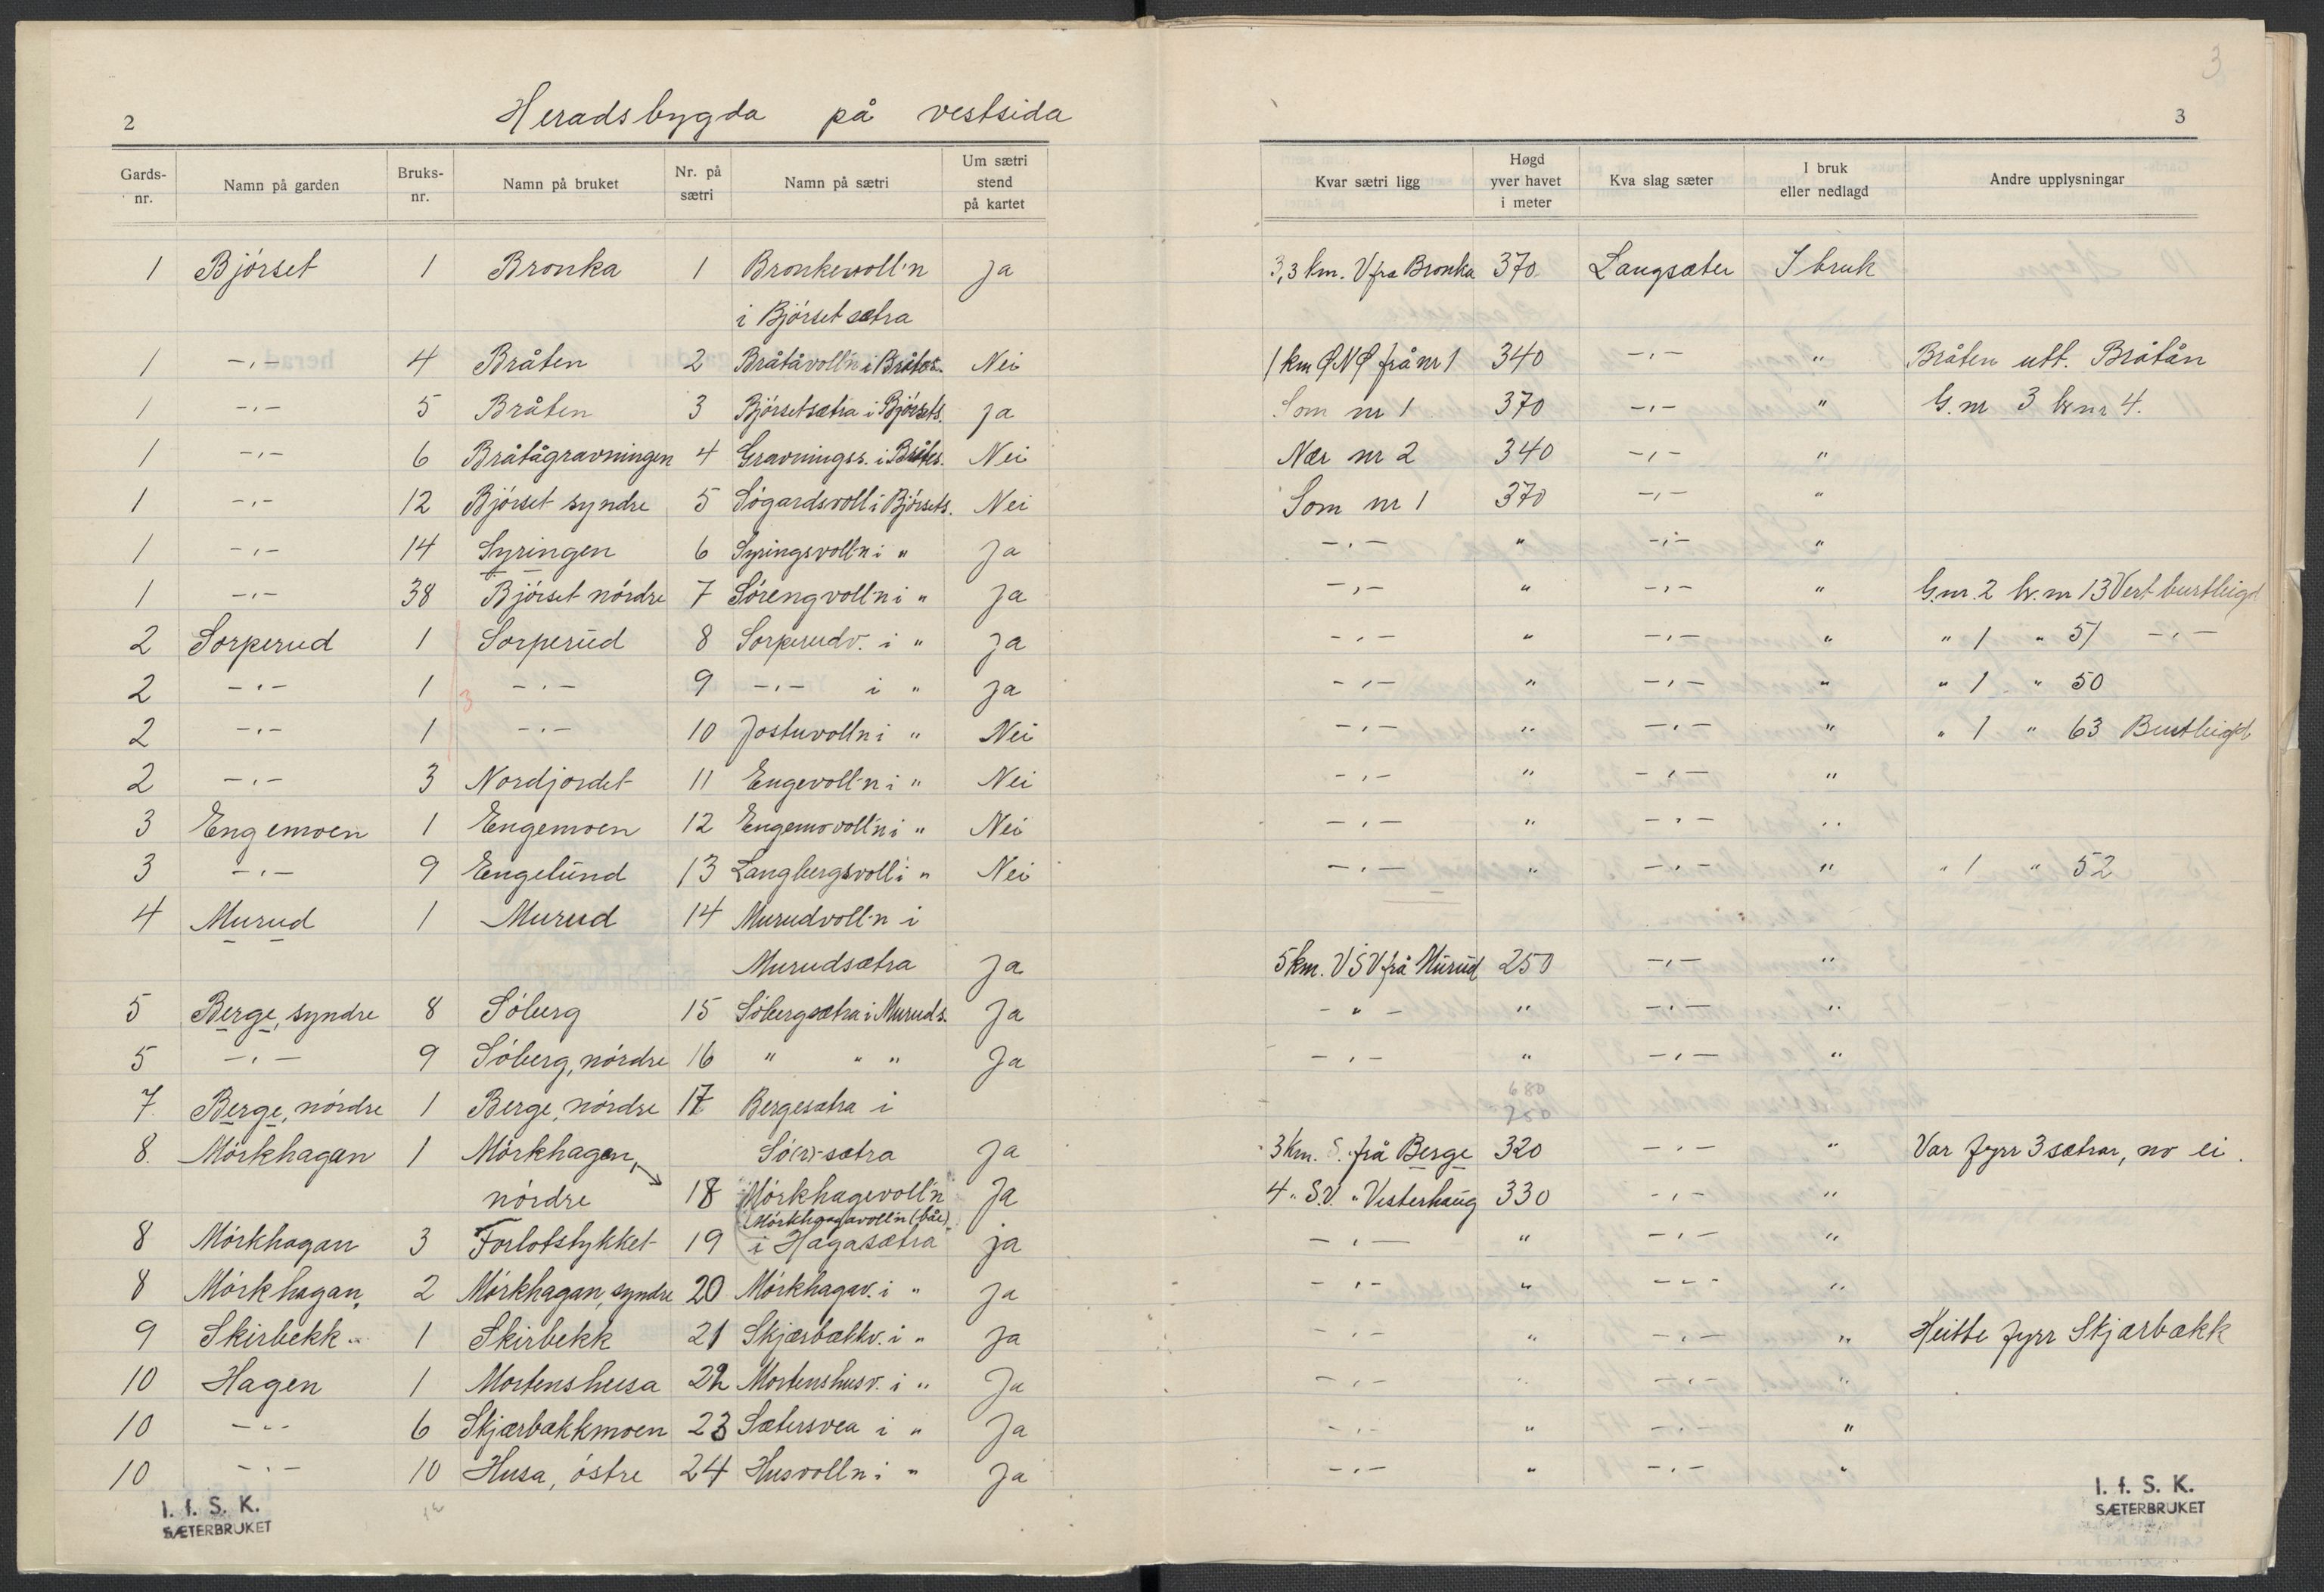 2
Heradsbygda på vestsida
Gards-nr. Namn på garden Bruks-nr. Namn på bruket Nr. på sætri Namn på sætri Um sætri stend på kartet
1 Bjórset 1 Bronka 1 Bronkevoll'n ja
i Bjórsetsætra
1 -"- 4 Bråten 2 Bråtåvoll'n i Bråtås. Nei
1 -"- 5 Bråten 3 Bjórsetsætra i Bjórsets. ja
1 -"- 6 Bråtågravningen 4 Gravningss. i Nei
1 -"- 12 Bjórset syndre 5 Sógardsvoll i Bjórsets. Nei
1 -"- 14 Syringen 6 Syringsvoll'n i " Ja
1 -"- 38 Bjórset nórdre 7 Sórengvoll'n i " Ja
2 Sorperud 1 Sorperud 8 Sorperudv. i " Ja
2 -"- 1 -"- 9 -"- i " Ja
3
2 -"- 1 -"- 10 Jostuvoll'n i " Nei
2 -"- 3 Nordjordet 11 Engevoll'n i " Nei
3 Engemoen 1 Engemoen 12 Engemovoll'n i " Nei
3 -"- 9 Engelund 13 Langbergsvoll i " Nei
4 Murud 1 Murud 14 Murudvoll'n i
Murudsætra Ja
5 Berge, syndre 8 Sóberg 15 Sóbergsætra i Muruds. Ja
5 -"- 9 Sóberg, nórdre 16 " " " Ja
7 Berge, nórdre 1 Berge, nórdre 17 Bergesætra i
8. Mórkhagan 1 Mórkhagen, Só(r)-sætra Ja
nórdre 18 Mórkhagevoll'n Ja
(Mórkhagavoll'n (båe)
8 Mórkhagan 3 Forlotstykket 19 i Hagasætra ja
8 Mórkhagan 2 Mórkhagan, syndre 20 Mórkhagav. i " Ja
9 Skirbekk 1 Skirbekk 21 Skjærbækkv. i " Ja
10 Hagen 1 Mortenshusa 22 Mortenshusv. i " Ja
10 -"- 6 Skjærbækkmoen 23 Sætersvea i " Ja
10 -"- 10 Husa, óstre 24 Husvoll'n i " Ja
I. f. S. K.
SÆTERBRUKET
3
3
Kvar sætri ligg Høgd yver havet i meter Kva slag sæter I bruk eller nedlagd Andre upplysningar
3,3 km. V fra Bronka 370 Langsæter I bruk
1 km ØNØ frå nr 1 340 -"- " Bråten utt. Bråtån
Som nr 1 370 -"- " G.nr 3 br nr 4.
Nær nr 2 340 -"- "
Som nr 1 370 -"- "
-"- " -"- "
-"- " -"- " G.nr. 2 br. nr 13 Vert burtleigd
-"- " -"- " " 1 " 51 -"-
-"- " -"- " " 1 " 50
-"- " -"- " " 1 " 63 Burtleigd
-"- " -"- "
-"- " -"- "
-"- " -"- " " 1 " 52
5 km. VSV frå Murud 250 -"- "
-"- " -"- "
-"- " -"- "
680
250
3 km. S. frå Berge 320 -"- " Var fyrr 3 sætrar, no ei.
4 " S.V. " Vesterhaug 330 -"- "
-"- " -"- "
-"- " -"- "
-"- " -"- " Heitte fyrr Skjærbækk
-"- " -"- "
-"- " -"- "
-"- " -"- "
I. f. S. K.
SÆTERBRUKET